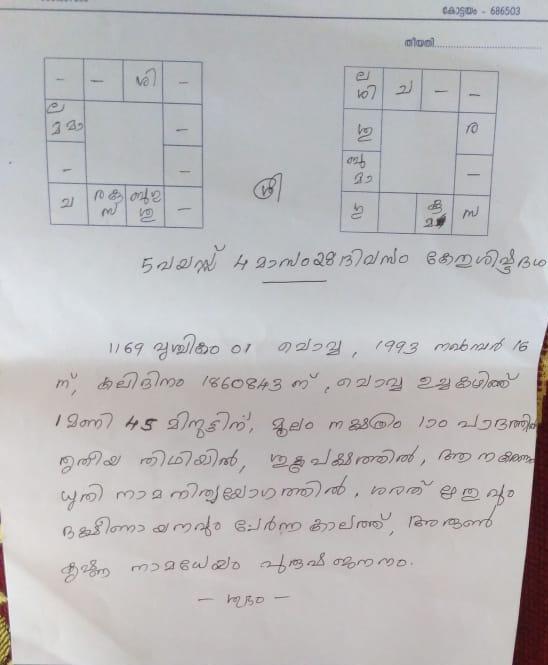 കോട്ടയം - 686503
തീയതി
- - ശി -
ല
മ മാ -
- -
ച രകു
സ ബുഗു
ശു -
ല
ശി ച - -
ഗു ര
ബു
മാ -
ശു കു
മ സ
ശ്രീ
5 വയസ്സ് 4 മാസം 28 ദിവസം കേതുശിഷ്ടദശ
1169 വൃശ്ചികം 01 ചൊവ്വ, 1993 നവംബർ 16
ന്, കലിദിനം 1860843 ന്, ചൊവ്വ ഉച്ചകഴിഞ്ഞ്
1 മണി 45 മിനുട്ടിന്, മൂലം നക്ഷത്രം 1ാം പാദത്തിൽ
തൃതീയ തിഥിയിൽ, ശുക്ലപക്ഷത്തിൽ, ആനക്കരണം
ധൃതി നാമ നിത്യയോഗത്തിൽ, ശരത് ഋതുവും
ദക്ഷിണായനവും ചേർന്ന കാലത്ത്, അരുൺ
കൃഷ്ണ നാമധേയം പുരുഷ ജനനം.
- ശുഭം -